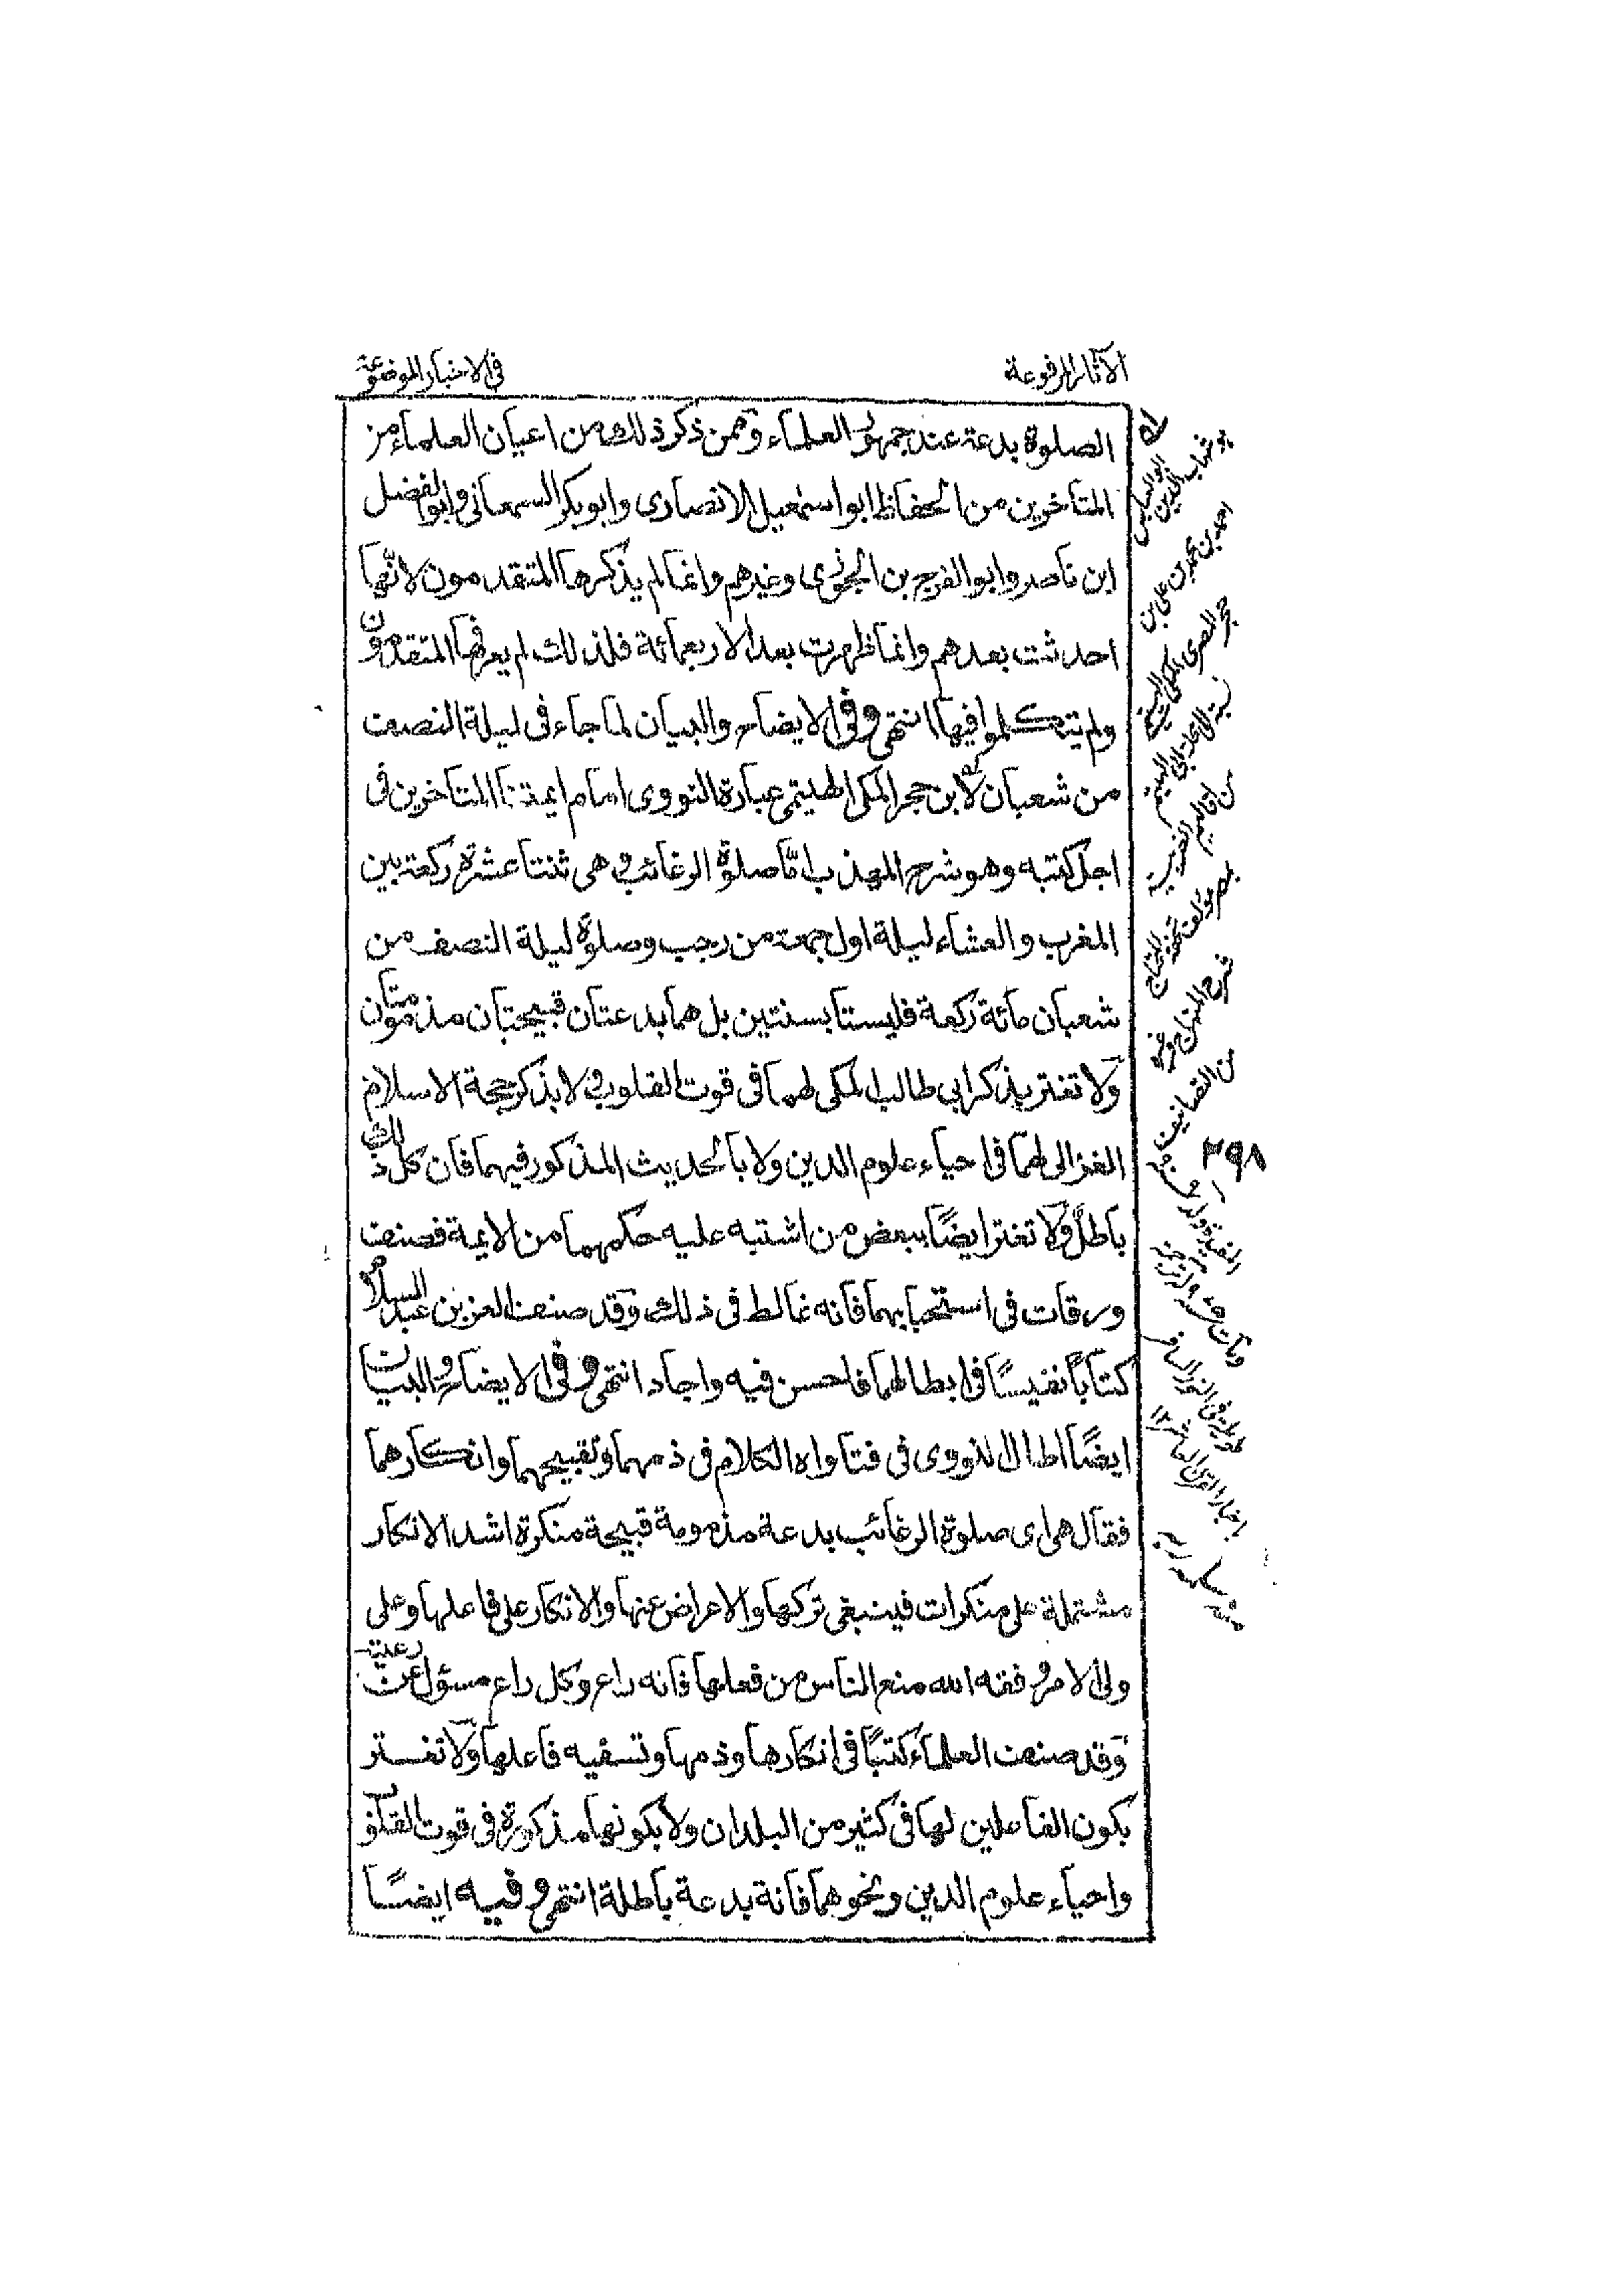 الآثار المرفوعة
في الاخبار الموضوعة
الصلوة بدعة عند جمهور العلماء وممن ذكر ذلك من اعيان العلماء من
المتاخرين من الحفاظ ابو اسمعيل الانصارى وابو بكر السمعانى وابو الفضل
ابن ناصر وابو الفرج بن الجوزى وغيرهم وانما لم يذكرها المتقدمون لانها
احدثت بعدهم وانما ظهرت بعد الاربعمائة فلذلك لم يعرفها المتقدمون
ولم يتكلموا فيها انتهى وفى الايضاح والبيان لما جاء فى ليلة النصف
من شعبان لابن حجر المكى الهيتمى عبارة النووى امام ايمتنا المتاخرين فى
اجل كتبه وهو شرح المهذب امّا صلوة الرغائب وهى ثنتا عشرة ركعة بين
المغرب والعشاء ليلة اول جمعة من رجب وصلوة ليلة النصف من
شعبان مائة ركعة فليستا بسنتين بل هما بدعتان قبيحتان مذمومتان
ولا تغتر بذكر ابى طالب المكى لهما فى قوت القلوب ولا بذكر حجة الاسلام
الغزالى لهما فى احياء علوم الدين ولا بالحديث المذكور فيهما فان كل ذلك
باطل ولا تغتر ايضًا ببعض من اشتبه عليه حكمهما من الايمة فصنف
ورقات فى استحبابهما فانه غالط فى ذلك وقد صنف العز بن عبد السلام
كتابًا نفيسًا فى ابطالهما فاحسن فيه واجاد انتهى وفى الايضاح والبيان
ايضًا اطال النووى فى فتاواه الكلام فى ذمهما وتقبيحهما وانكارهما
فقال هى اى صلوة الرغائب بدعة مذمومة قبيحة منكرة اشد الانكار
مشتملة على منكرات فينبغى تركها والاعراض عنها والانكار على فاعلها وعلى
ولى الامر وفقه الله منع الناس من فعلها فانه راع وكل راع مسؤل عن رعيته
وقد صنف العلماء كتبًا فى انكارها وذمها وتسفيه فاعلها ولا تغتر
بكون الفاعلين لها فى كثير من البلدان ولا بكونها مذكورة فى قوت القلوب
واحياء علوم الدين ونحوهما فانة بدعة باطلة انتهى وفيه ايضًا
شهاب الدين
احمد بن محمد بن على بن
حجر المصرى المكى
من اقاليم الغربية
بمصر مؤلف تحفة المحتاج
شرح المنهاج وغيره
من التصانيف
٢٩٨